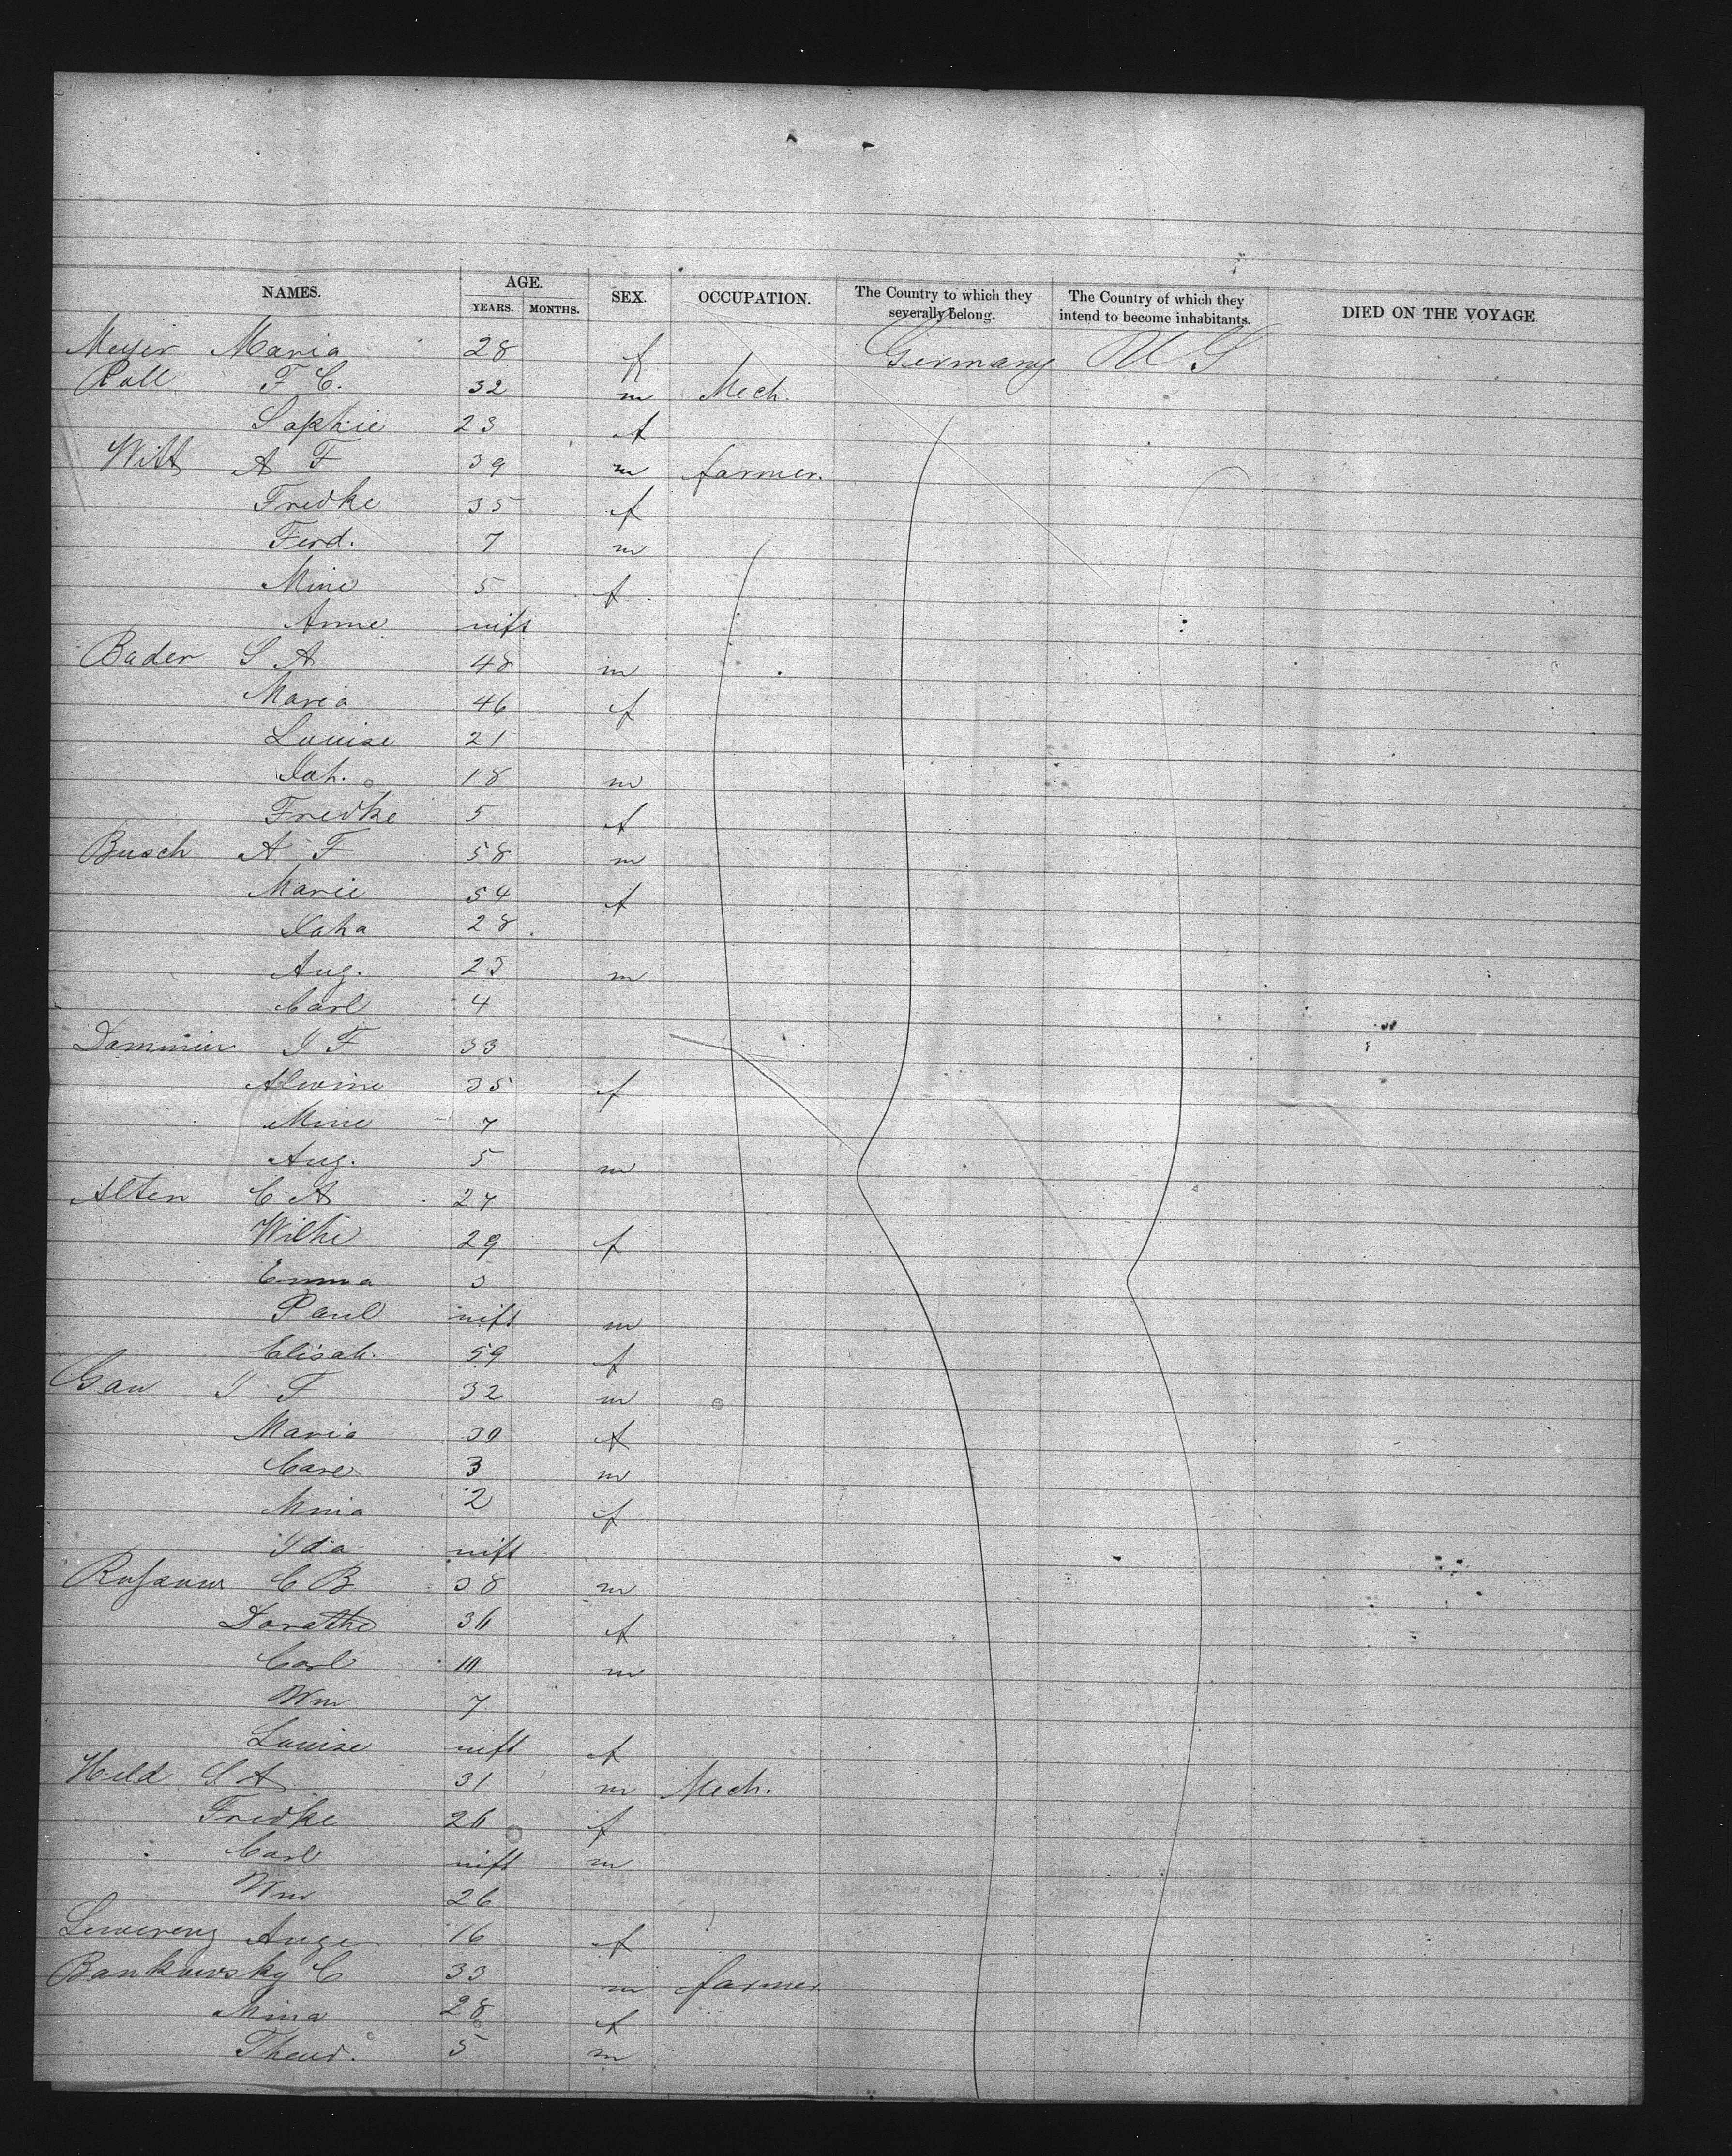 NAMES. AGE. YEARS. MONTHS. SEX. OCCUPATION. The Country to which they severally belong. The Country of which they intend to become inhabitants. DIED ON THE VOYAGE.
Meyer Maria 28 f Germany U S
F C. 32 m Mech.
Sophie 23 f
Witt A F 39 m farmer.
Fredke 35 f
Ferd. 7 m
Mine 5 f
Anne inft
Bader S A 48 m
Maria 46 f
Louise 21
Joh. 18 m
Fredke 5 f
Busch A F 58 m
Marie 54 f
Joha 28
Aug. 23 m
Carl 4
J F 33
Alwine 35 f
Mine 7
Aug. 5 m
Alten C A 27
Wilhe 29 f
Emma 3
Paul inft m
Elisab. 59 f
Gau J F 32 m
Maria 30 f
Carl 3 m
Mina 2 f
Ida inft
C B 38 m
Dorothe 36 f
Carl 10 m
Wm 7
Louise inft f
Held S A 31 m Mech.
Fredke 26 f
Carl inft m
Wm 26
Lewerenz Auge 16 f
Bankowsky C 33 m farmer
Mina 28 f
Theod. 5 m